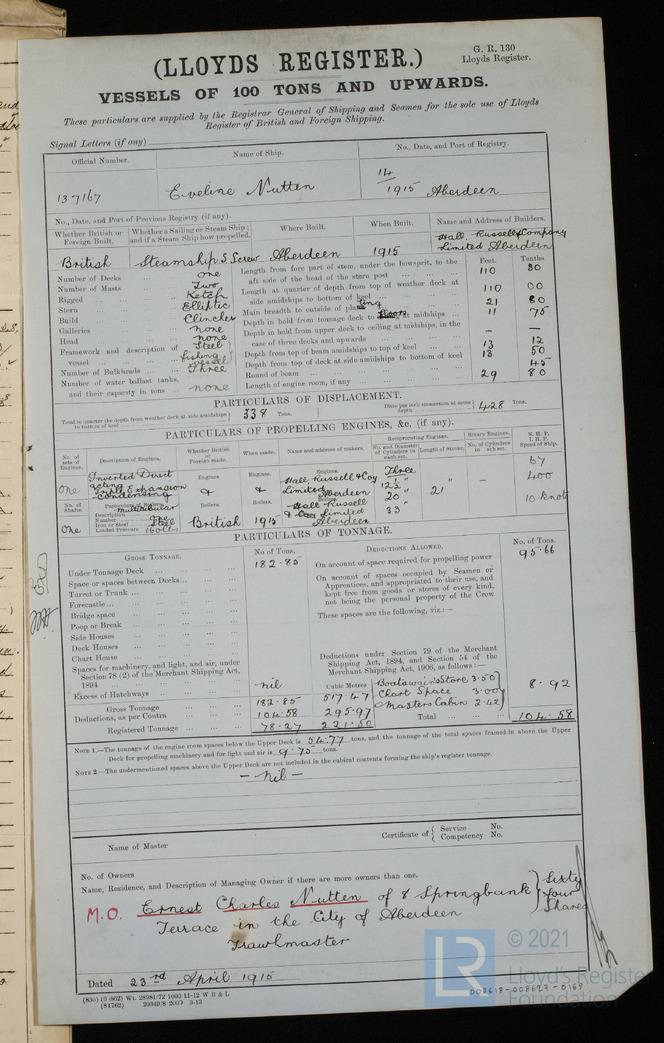 G. R. 130
Lloyds Register.
(LLOYDS REGISTER.)
VESSELS OF 100 TONS AND UPWARDS.
These particulars are supplied by the Registrar General of Shipping and Seamen for the sole use of Lloyds
Register of British and Foreign Shipping.
Signal Letters (if any)
Official Number. Name of Ship. No., Date, and Port of Registry.
137167 Eveline Nutten 14/1915 Aberdeen
No., Date, and Port of Previous Registry (if any).
Whether British or Foreign Built. Whether a Sailing or Steam Ship; and if a Steam Ship how propelled. Where Built. When Built. Name and Address of Builders.
British Steamship S. Screw Aberdeen 1915 Hall, Russell & Company Limited Aberdeen
Feet. Tenths
Number of Decks one Length from fore part of stem, under the bowsprit, to the aft side of the head of the stern post 110 30
Number of Masts Two Length at quarter of depth from top of weather deck at side amidships to bottom of keel 110 00
Rigged Ketch Main breadth to outside of plating 21 80
Stern Elliptic Depth in hold from tonnage deck to floors at midships 11 75
Build Clincher Depth in hold from upper deck to ceiling at midships, in the case of three decks and upwards — —
Galleries none
Head none Depth from top of beam amidships to top of keel 13 12
Framework and description of vessel Steel fishing vessel Depth from top of deck at side amidships to bottom of keel 13 50
Number of Bulkheads Three Round of beam 45
Number of water ballast tanks, and their capacity in tons none Length of engine room, if any 29 80
PARTICULARS OF DISPLACEMENT.
Total to quarter the depth from weather deck at side amidships to bottom of keel 338 Tons. Ditto per inch immersion at same depth 428 Tons.
PARTICULARS OF PROPELLING ENGINES, &c. (if any).
No. of sets of Engines. Description of Engines. Whether British or Foreign made. When made. Name and address of makers. Reciprocating Engines. Rotary Engines. N. H. P. I. H. P. Speed of Ship.
No. and Diameter of Cylinders in each set. Length of Stroke. No. of Cylinders in each set.
one Inverted Direct acting Triple Expansion Condensing Engines. Engines. Engines. Hall, Russell & Coy Limited Aberdeen Three 12½" 20" 33 21" — 67 400 10 knots
No. of Shafts. Particulars of Boilers. Boilers. Boilers. Boilers.
one Description Multitubular Number One Iron or Steel Steel Loaded Pressure British 1915 Hall Russell & Coy Limited Aberdeen
PARTICULARS OF TONNAGE.
GROSS TONNAGE. No. of Tons. DEDUCTIONS ALLOWED. No. of Tons.
Under Tonnage Deck 182.85 On account of space required for propelling power 95.66
Space or spaces between Decks On account of spaces occupied by Seamen or
Turret or Trunk Apprentices, and appropriated to their use, and
Forecastle kept free from goods or stores of every kind,
Bridge space not being the personal property of the Crew
Poop or Break These spaces are the following, viz:—
Side Houses
Deck Houses
Chart House Deductions under Section 79 of the Merchant
Spaces for machinery, and light, and air, under Shipping Act, 1894, and Section 54 of the
Section 78 (2) of the Merchant Shipping Act, 1894 Merchant Shipping Act, 1906, as follows:—
nil Cubic Metres Boatswain's Store 3.50
Excess of Hatchways 517.47 Chart Space 3.00 8.92
Gross Tonnage 182.85 Masters Cabin 2.42
Deductions, as per Contra 104.58 295.97 Total 104.58
Registered Tonnage 78.27 221.50
NOTE 1.—The tonnage of the engine room spaces below the Upper Deck is 54.77 tons, and the tonnage of the total spaces framed in above the Upper
Deck for propelling machinery and for light and air is 9.75 tons.
NOTE 2.—The undermentioned spaces above the Upper Deck are not included in the cubical contents forming the ship's register tonnage.
— Nil —
Name of Master Certificate of { Service No. Competency No.
No. of Owners
Name, Residence, and Description of Managing Owner if there are more owners than one.
M.O. Ernest Charles Nutten of 8 Springbank } Sixty
Terrace in the City of Aberdeen four
Trawlmaster Shares
Dated 23rd April 1915
(830) (6 862) Wt. 28981/72 1000 11-12 W B & L
(81762) 20349/8 2000 3-13
© 2021
LR
Lloyd's Register
Foundation
008618-008627-0168